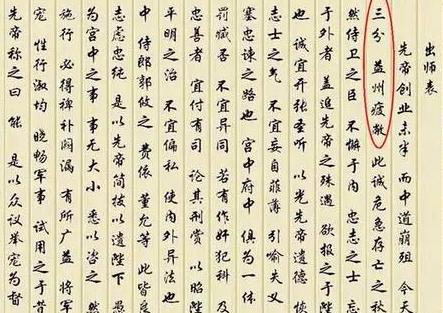 出师表
先帝创业未半 而中道崩殂 今天
三分 益州疲敝 此诚危急存亡之秋
然侍卫之臣 不懈于内 忠志之士 忘
于外者 盖追先帝之殊遇 欲报之于陛
也 诚宜开张圣听 以光先帝遗德 恢
志士之气 不宜妄自菲薄 引喻失义
塞忠谏之路也 宫中府中 俱为一体
罚臧否 不宜异同 若有作奸犯科 及
忠善者 宜付有司 论其刑赏 以昭陛
平明之治 不宜偏私 使内外异法也
中 侍郎郭攸之 费祎 董允等 此皆良
志虑忠纯 是以先帝简拔以遗陛下 愚
为宫中之事 事无大小 悉以咨之 然
施行 必得裨补阙漏 有所广益 将军
宠 性行淑均 晓畅军事 试用之于昔
先帝称之曰 能 是以众议举宠为督